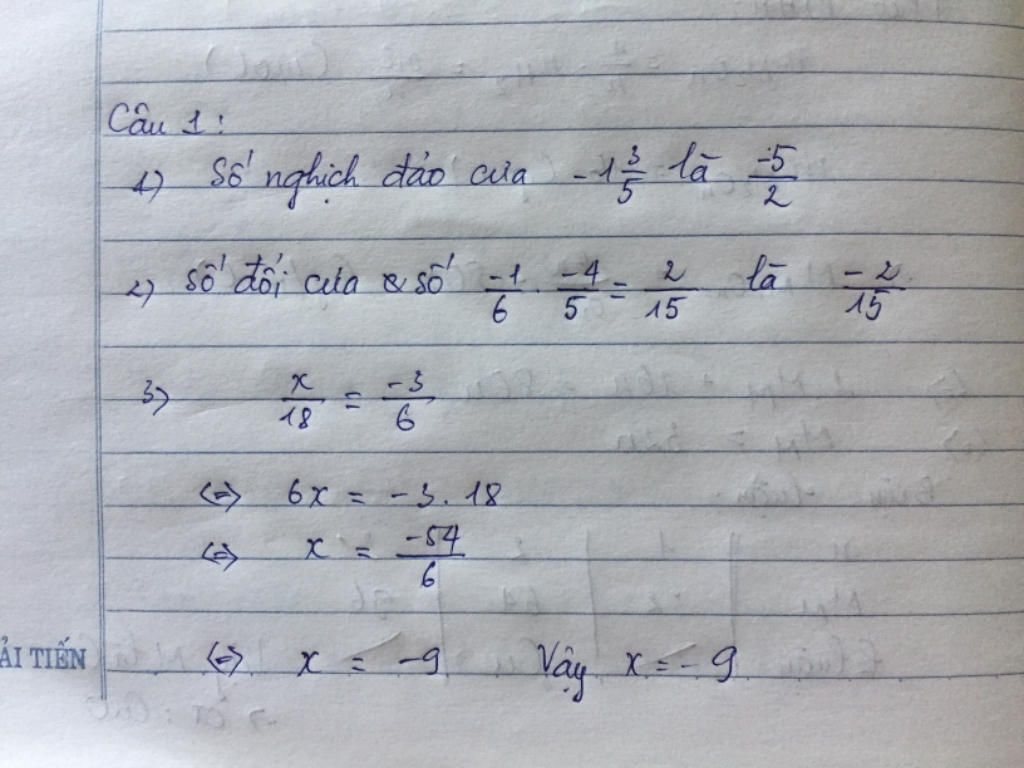 Câu 1:
1) Số nghịch đảo của -1 3/5 là -5/2
2) Số đối của số -1/6 . -4/5 = 2/15 là -2/15
3) x/18 = -3/6
<=> 6x = -3.18
<=> x = -54/6
ẢI TIẾN
<=> x = -9 Vậy x = -9